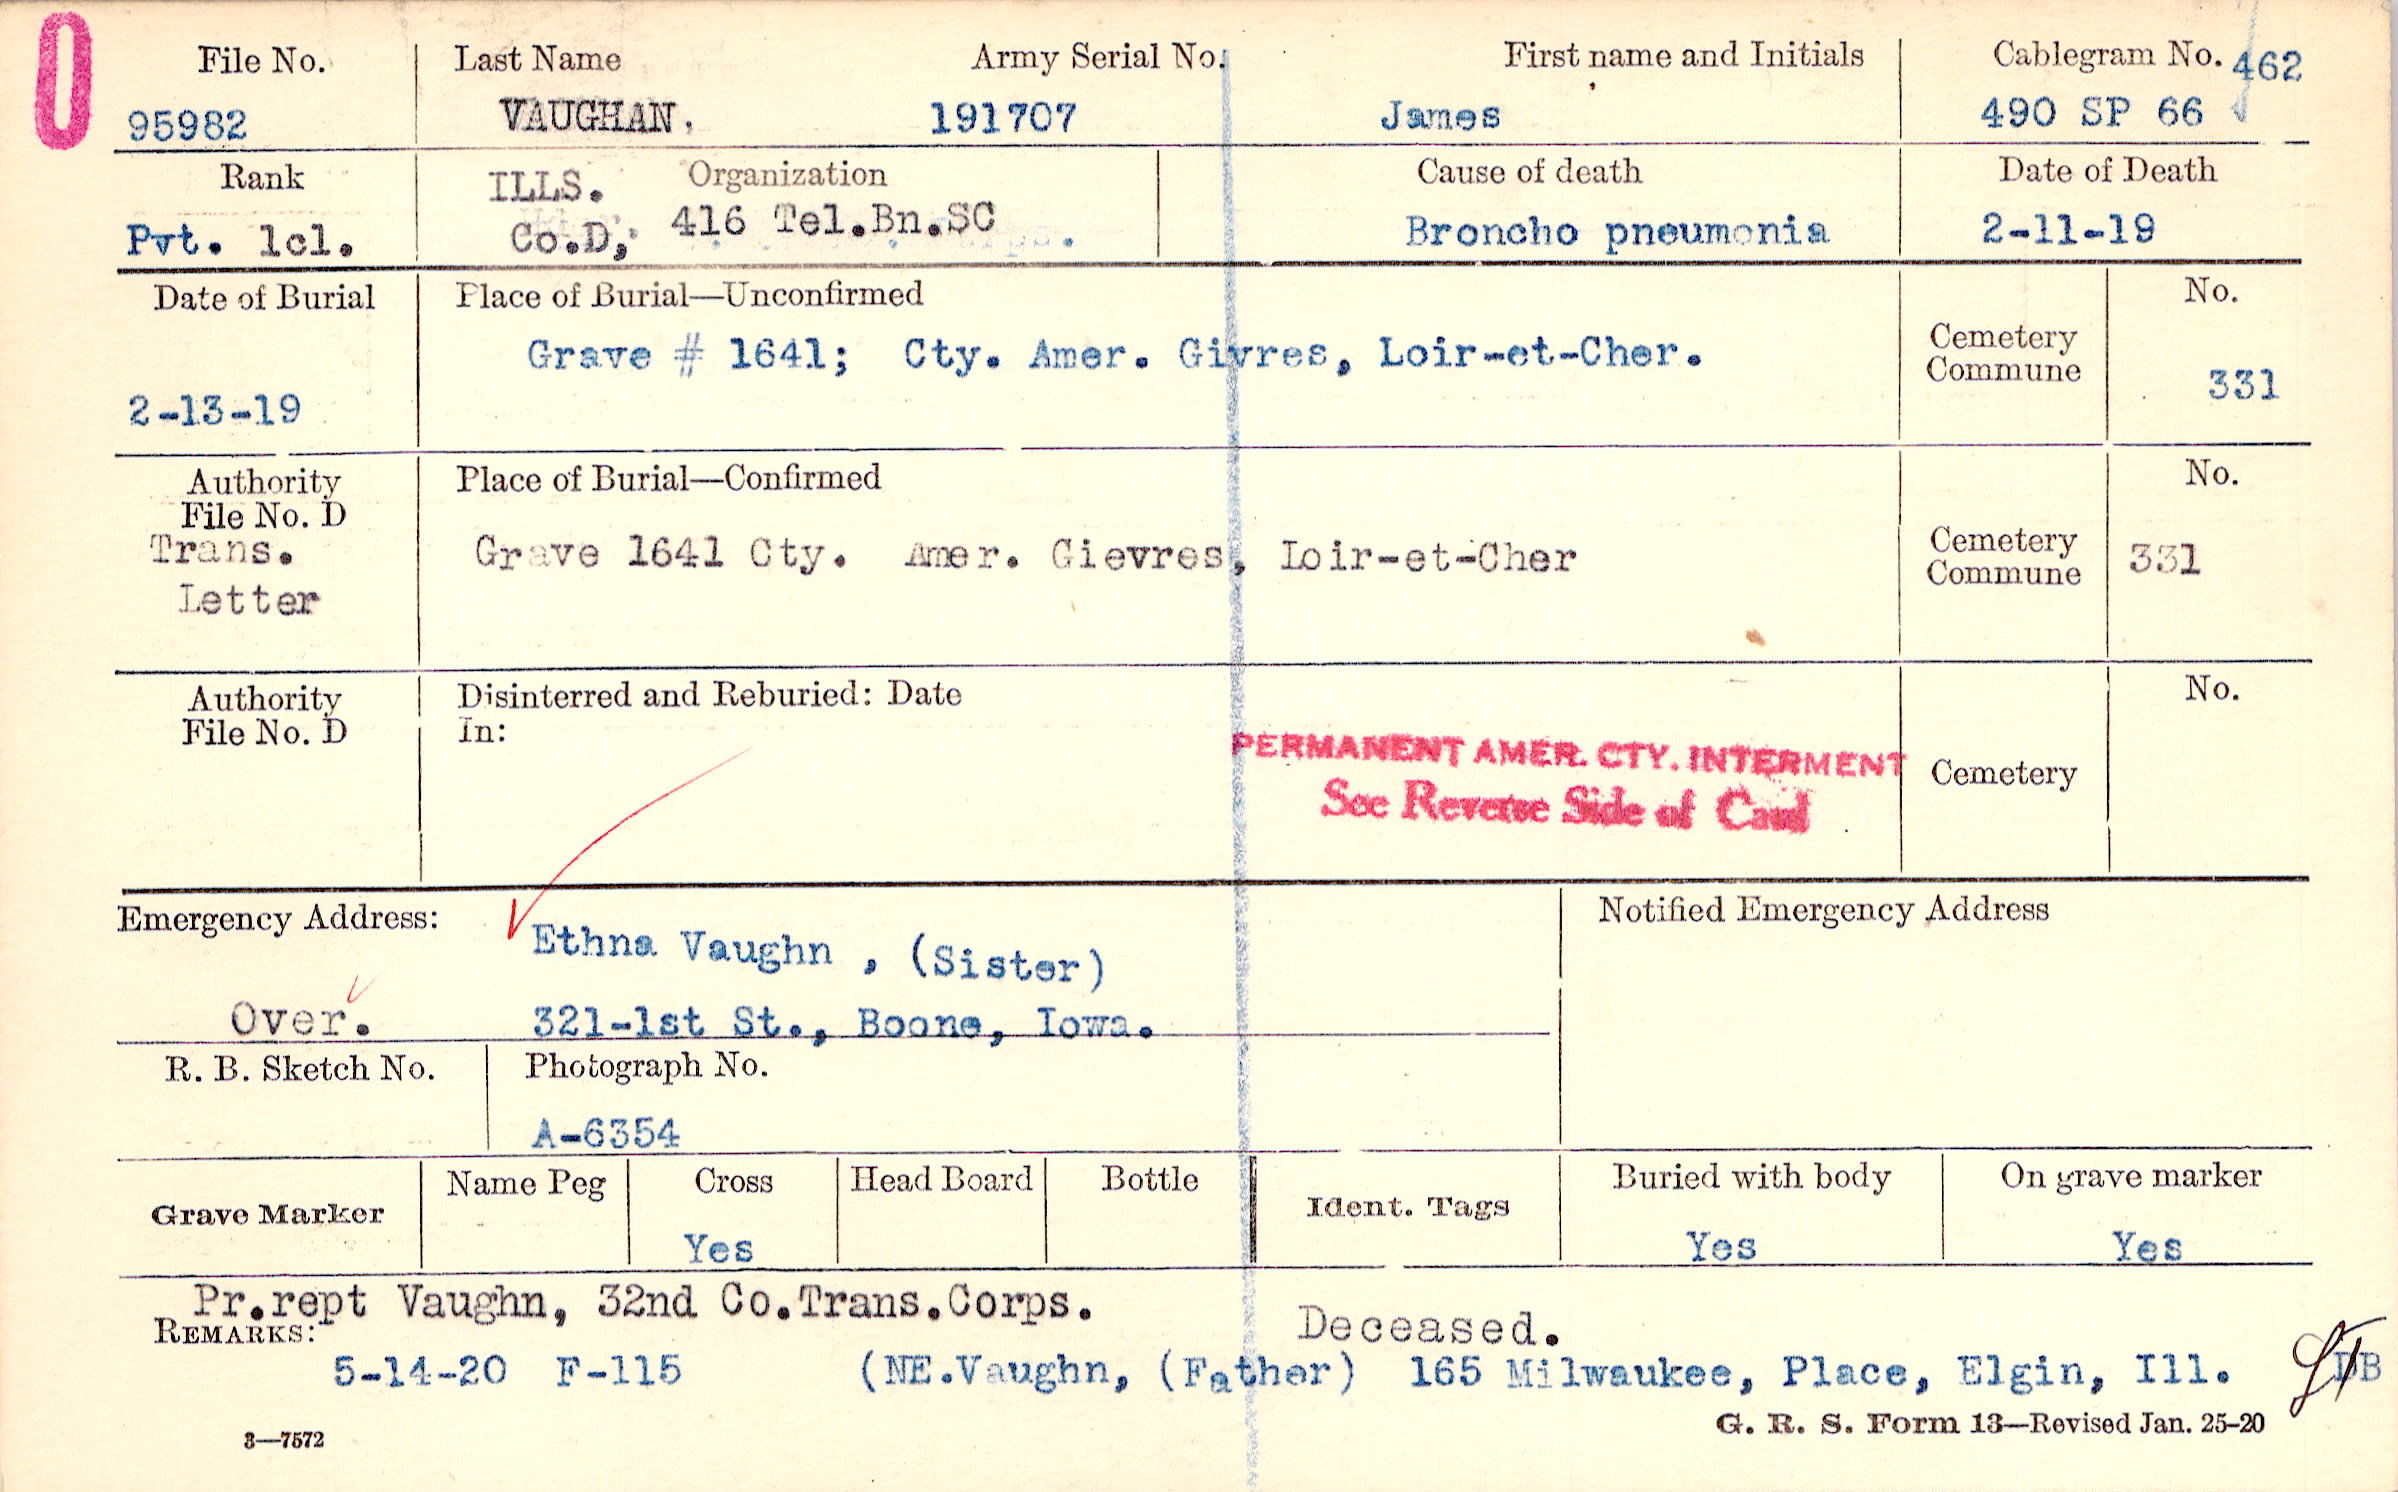 0
File No. Last Name Army Serial No. First name and Initials Cablegram No. 462
95982 VAUGHAN. 191707 James 490 SP 66
Rank ILLS. Organization Cause of death Date of Death
Pvt. 1cl. Co.D, 416 Tel.Bn.SC Broncho pneumonia 2-11-19
Date of Burial Place of Burial—Unconfirmed No.
Grave # 1641; Cty. Amer. Givres, Loir-et-Cher. Cemetery
Commune
2-13-19 331
Authority Place of Burial—Confirmed No.
File No. D
Trans. Grave 1641 Cty. Amer. Gievres, Loir-et-Cher Cemetery
Commune 331
Letter
Authority Disinterred and Reburied: Date No.
File No. D In:
PERMANENT AMER. CTY. INTERMENT
Cemetery
See Reverse Side of Card
Emergency Address: Notified Emergency Address
Ethna Vaughn , (Sister)
Over. 321-1st St., Boone, Iowa.
R. B. Sketch No. Photograph No.
A-6354
Grave Marker Name Peg Cross Head Board Bottle Ident. Tags Buried with body On grave marker
Yes Yes Yes
Pr.rept Vaughn, 32nd Co.Trans.Corps. Deceased.
REMARKS:
5-14-20 F-115 (NE.Vaughn, (Father) 165 Milwaukee, Place, Elgin, Ill. DB
3—7572 G. R. S. Form 13—Revised Jan. 25-20